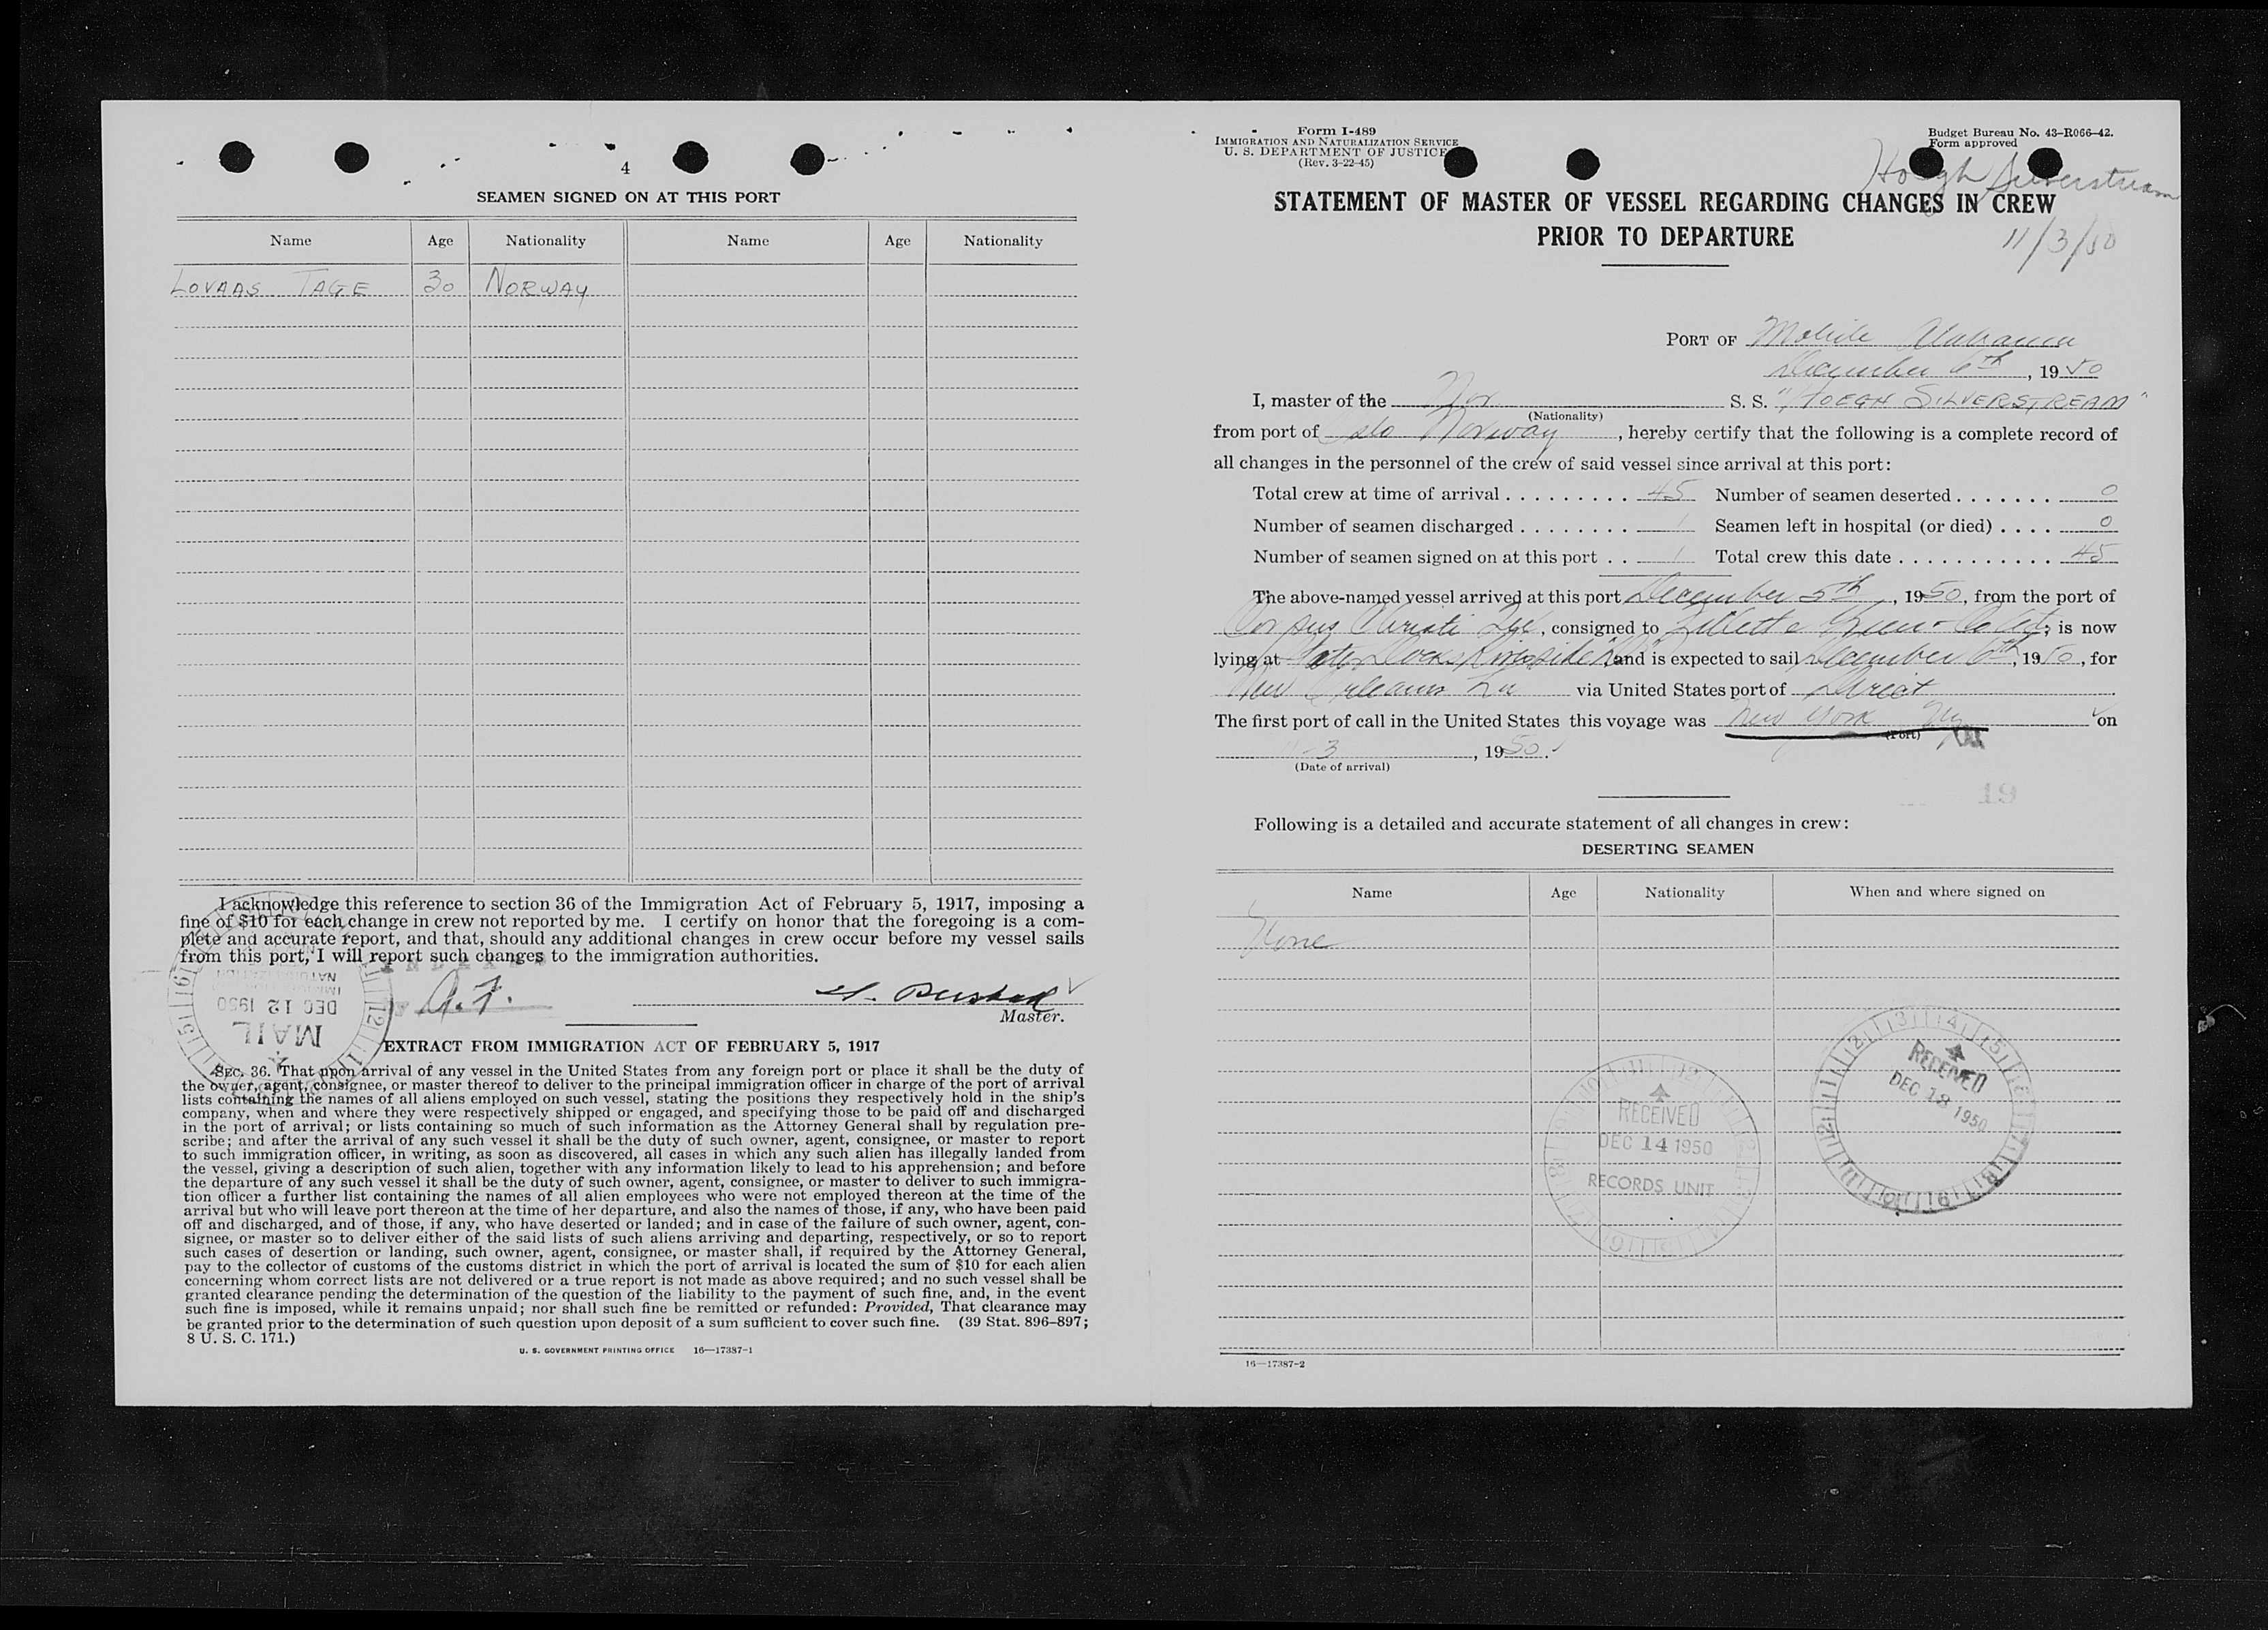 4
SEAMEN SIGNED ON AT THIS PORT
Name Age Nationality Name Age Nationality
LOVAAS TAGE 30 NORWAY
I acknowledge this reference to section 36 of the Immigration Act of February 5, 1917, imposing a
fine of $10 for each change in crew not reported by me. I certify on honor that the foregoing is a com-
plete and accurate report, and that, should any additional changes in crew occur before my vessel sails
from this port, I will report such changes to the immigration authorities.
DEC 12 1950
MAIL
Master.
EXTRACT FROM IMMIGRATION ACT OF FEBRUARY 5, 1917
SEC. 36. That upon arrival of any vessel in the United States from any foreign port or place it shall be the duty of
the owner, agent, consignee, or master thereof to deliver to the principal immigration officer in charge of the port of arrival
lists containing the names of all aliens employed on such vessel, stating the positions they respectively hold in the ship's
company, when and where they were respectively shipped or engaged, and specifying those to be paid off and discharged
in the port of arrival; or lists containing so much of such information as the Attorney General shall by regulation pre-
scribe; and after the arrival of any such vessel it shall be the duty of such owner, agent, consignee, or master to report
to such immigration officer, in writing, as soon as discovered, all cases in which any such alien has illegally landed from
the vessel, giving a description of such alien, together with any information likely to lead to his apprehension; and before
the departure of any such vessel it shall be the duty of such owner, agent, consignee, or master to deliver to such immigra-
tion officer a further list containing the names of all alien employees who were not employed thereon at the time of the
arrival but who will leave port thereon at the time of her departure, and also the names of those, if any, who have been paid
off and discharged, and of those, if any, who have deserted or landed; and in case of the failure of such owner, agent, con-
signee, or master so to deliver either of the said lists of such aliens arriving and departing, respectively, or so to report
such cases of desertion or landing, such owner, agent, consignee, or master shall, if required by the Attorney General,
pay to the collector of customs of the customs district in which the port of arrival is located the sum of $10 for each alien
concerning whom correct lists are not delivered or a true report is not made as above required; and no such vessel shall be
granted clearance pending the determination of the question of the liability to the payment of such fine, and, in the event
such fine is imposed, while it remains unpaid; nor shall such fine be remitted or refunded: Provided, That clearance may
be granted prior to the determination of such question upon deposit of a sum sufficient to cover such fine. (39 Stat. 896-897;
8 U. S. C. 171.)
U. S. GOVERNMENT PRINTING OFFICE 16—17387-1
Form I-489
IMMIGRATION AND NATURALIZATION SERVICE
U. S. DEPARTMENT OF JUSTICE
(Rev. 3-22-45)
Budget Bureau No. 43-R066-42.
Form approved
Hoegh Silverstream
11/3/50
STATEMENT OF MASTER OF VESSEL REGARDING CHANGES IN CREW
PRIOR TO DEPARTURE
PORT OF Mobile Alabama
December 6th, 1950
I, master of the Nor S. S. "HOEGH SILVERSTREAM"
(Nationality)
from port of Oslo Norway, hereby certify that the following is a complete record of
all changes in the personnel of the crew of said vessel since arrival at this port:
Total crew at time of arrival . . . . . . . . . 45 Number of seamen deserted . . . . . . . 0
Number of seamen discharged . . . . . . . . 1 Seamen left in hospital (or died) . . . . 0
Number of seamen signed on at this port . . 1 Total crew this date . . . . . . . . . . . 45
The above-named vessel arrived at this port December 5th, 1950, from the port of
Corpus Christi, consigned to is now
lying at Docks and is expected to sail December 6th, 1950, for
New Orleans La via United States port of Direct
The first port of call in the United States this voyage was New York Ny on
(Port)
3, 1950.
(Date of arrival)
19
Following is a detailed and accurate statement of all changes in crew:
DESERTING SEAMEN
Name Age Nationality When and where signed on
None
RECEIVED
DEC 14 1950
RECORDS UNIT
RECEIVED
DEC 18 1950
16—17387-2